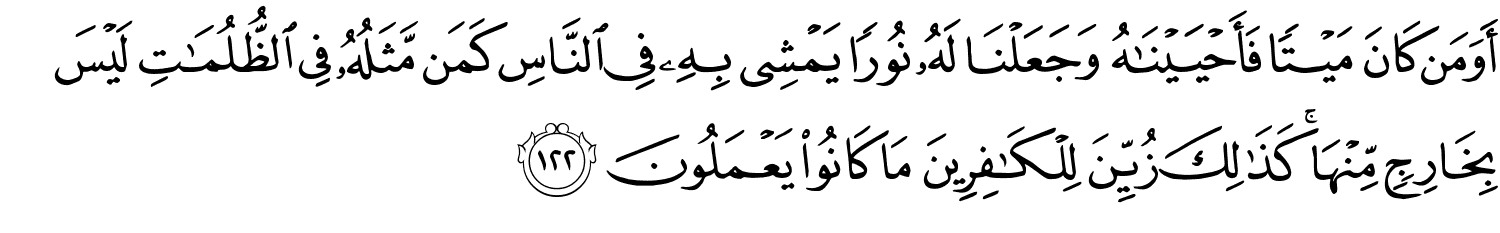 أَوَمَن كَانَ مَيۡتٗا فَأَحۡيَيۡنَٰهُ وَجَعَلۡنَا لَهُۥ نُورٗا يَمۡشِي بِهِۦ فِي ٱلنَّاسِ كَمَن مَّثَلُهُۥ فِي ٱلظُّلُمَٰتِ لَيۡسَ
بِخَارِجٖ مِّنۡهَاۚ كَذَٰلِكَ زُيِّنَ لِلۡكَٰفِرِينَ مَا كَانُواْ يَعۡمَلُونَ ١٢٢